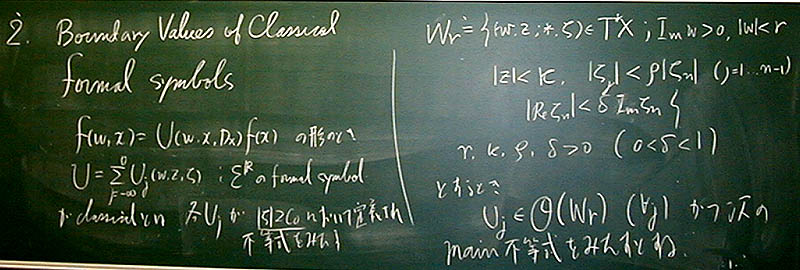 2. Boundary Values of Classical
formal symbols
f(w,x) = U(w.x,Dx)f(x) の形のとき
U = Σ_{j=-∞}^{0} U_j(w.z,ζ) ; ℰ^ℝ の formal symbol
が classical とは 各U_j が |ζ|≥C₀ において定義され
不等式をみたす
W_r = {(w.z;*.ζ)∈T*X ; Im w>0, |w|<r
|z|<κ, |ζ_j|<ρ|ζ_n| (j=1...n-1)
|Re ζ_n|<δ Im ζ_n }
r, κ, ρ, δ>0 (0<δ<1)
とするとき
U_j ∈ O(W_r) (∀j) かつ 次の
main 不等式をみたすとする.